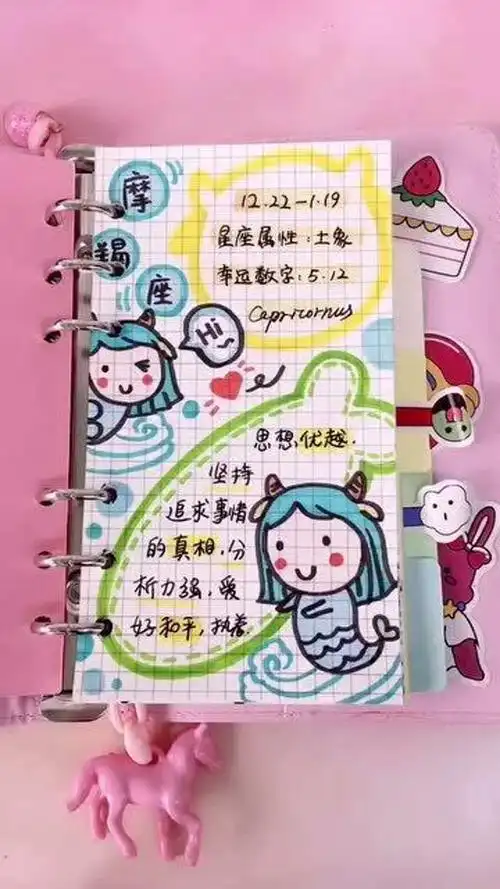 摩
羯
座
12.22-1.19
星座属性:土象
幸运数字:5.12
Capricornus
Hi
思想优越.
坚持
追求事情
的真相.分
析力强,爱
好和平,执着.